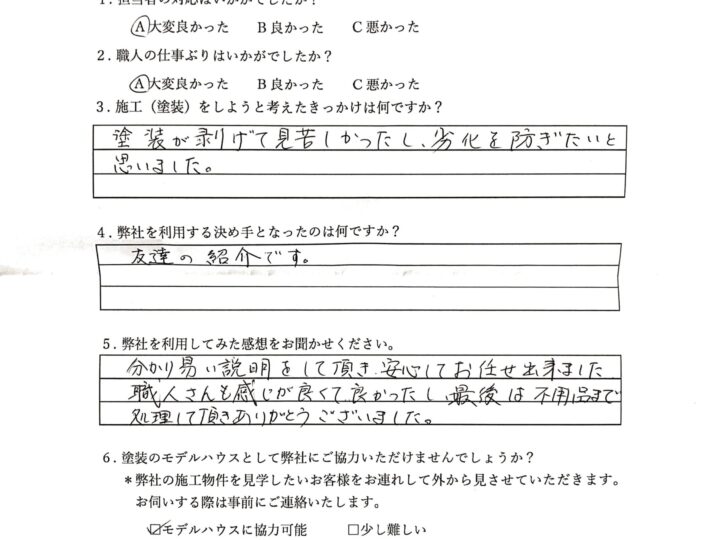 1. 担当者の対応はいかがでしたか？
A 大変良かった B 良かった C 悪かった
2. 職人の仕事ぶりはいかがでしたか？
A 大変良かった B 良かった C 悪かった
3. 施工（塗装）をしようと考えたきっかけは何ですか？
塗装が剥げて見苦しかったし、劣化を防ぎたいと
思いました。
4. 弊社を利用する決め手となったのは何ですか？
友達の紹介です。
5. 弊社を利用してみた感想をお聞かせください。
分かり易い説明をして頂き安心してお任せ出来ました
職人さんも感じが良くて良かったし最後は不用品まで
処理して頂きありがとうございました。
6. 塗装のモデルハウスとして弊社にご協力いただけませんでしょうか？
＊弊社の施工物件を見学したいお客様をお連れして外から見させていただきます。
お伺いする際は事前にご連絡いたします。
☑モデルハウスに協力可能 □少し難しい